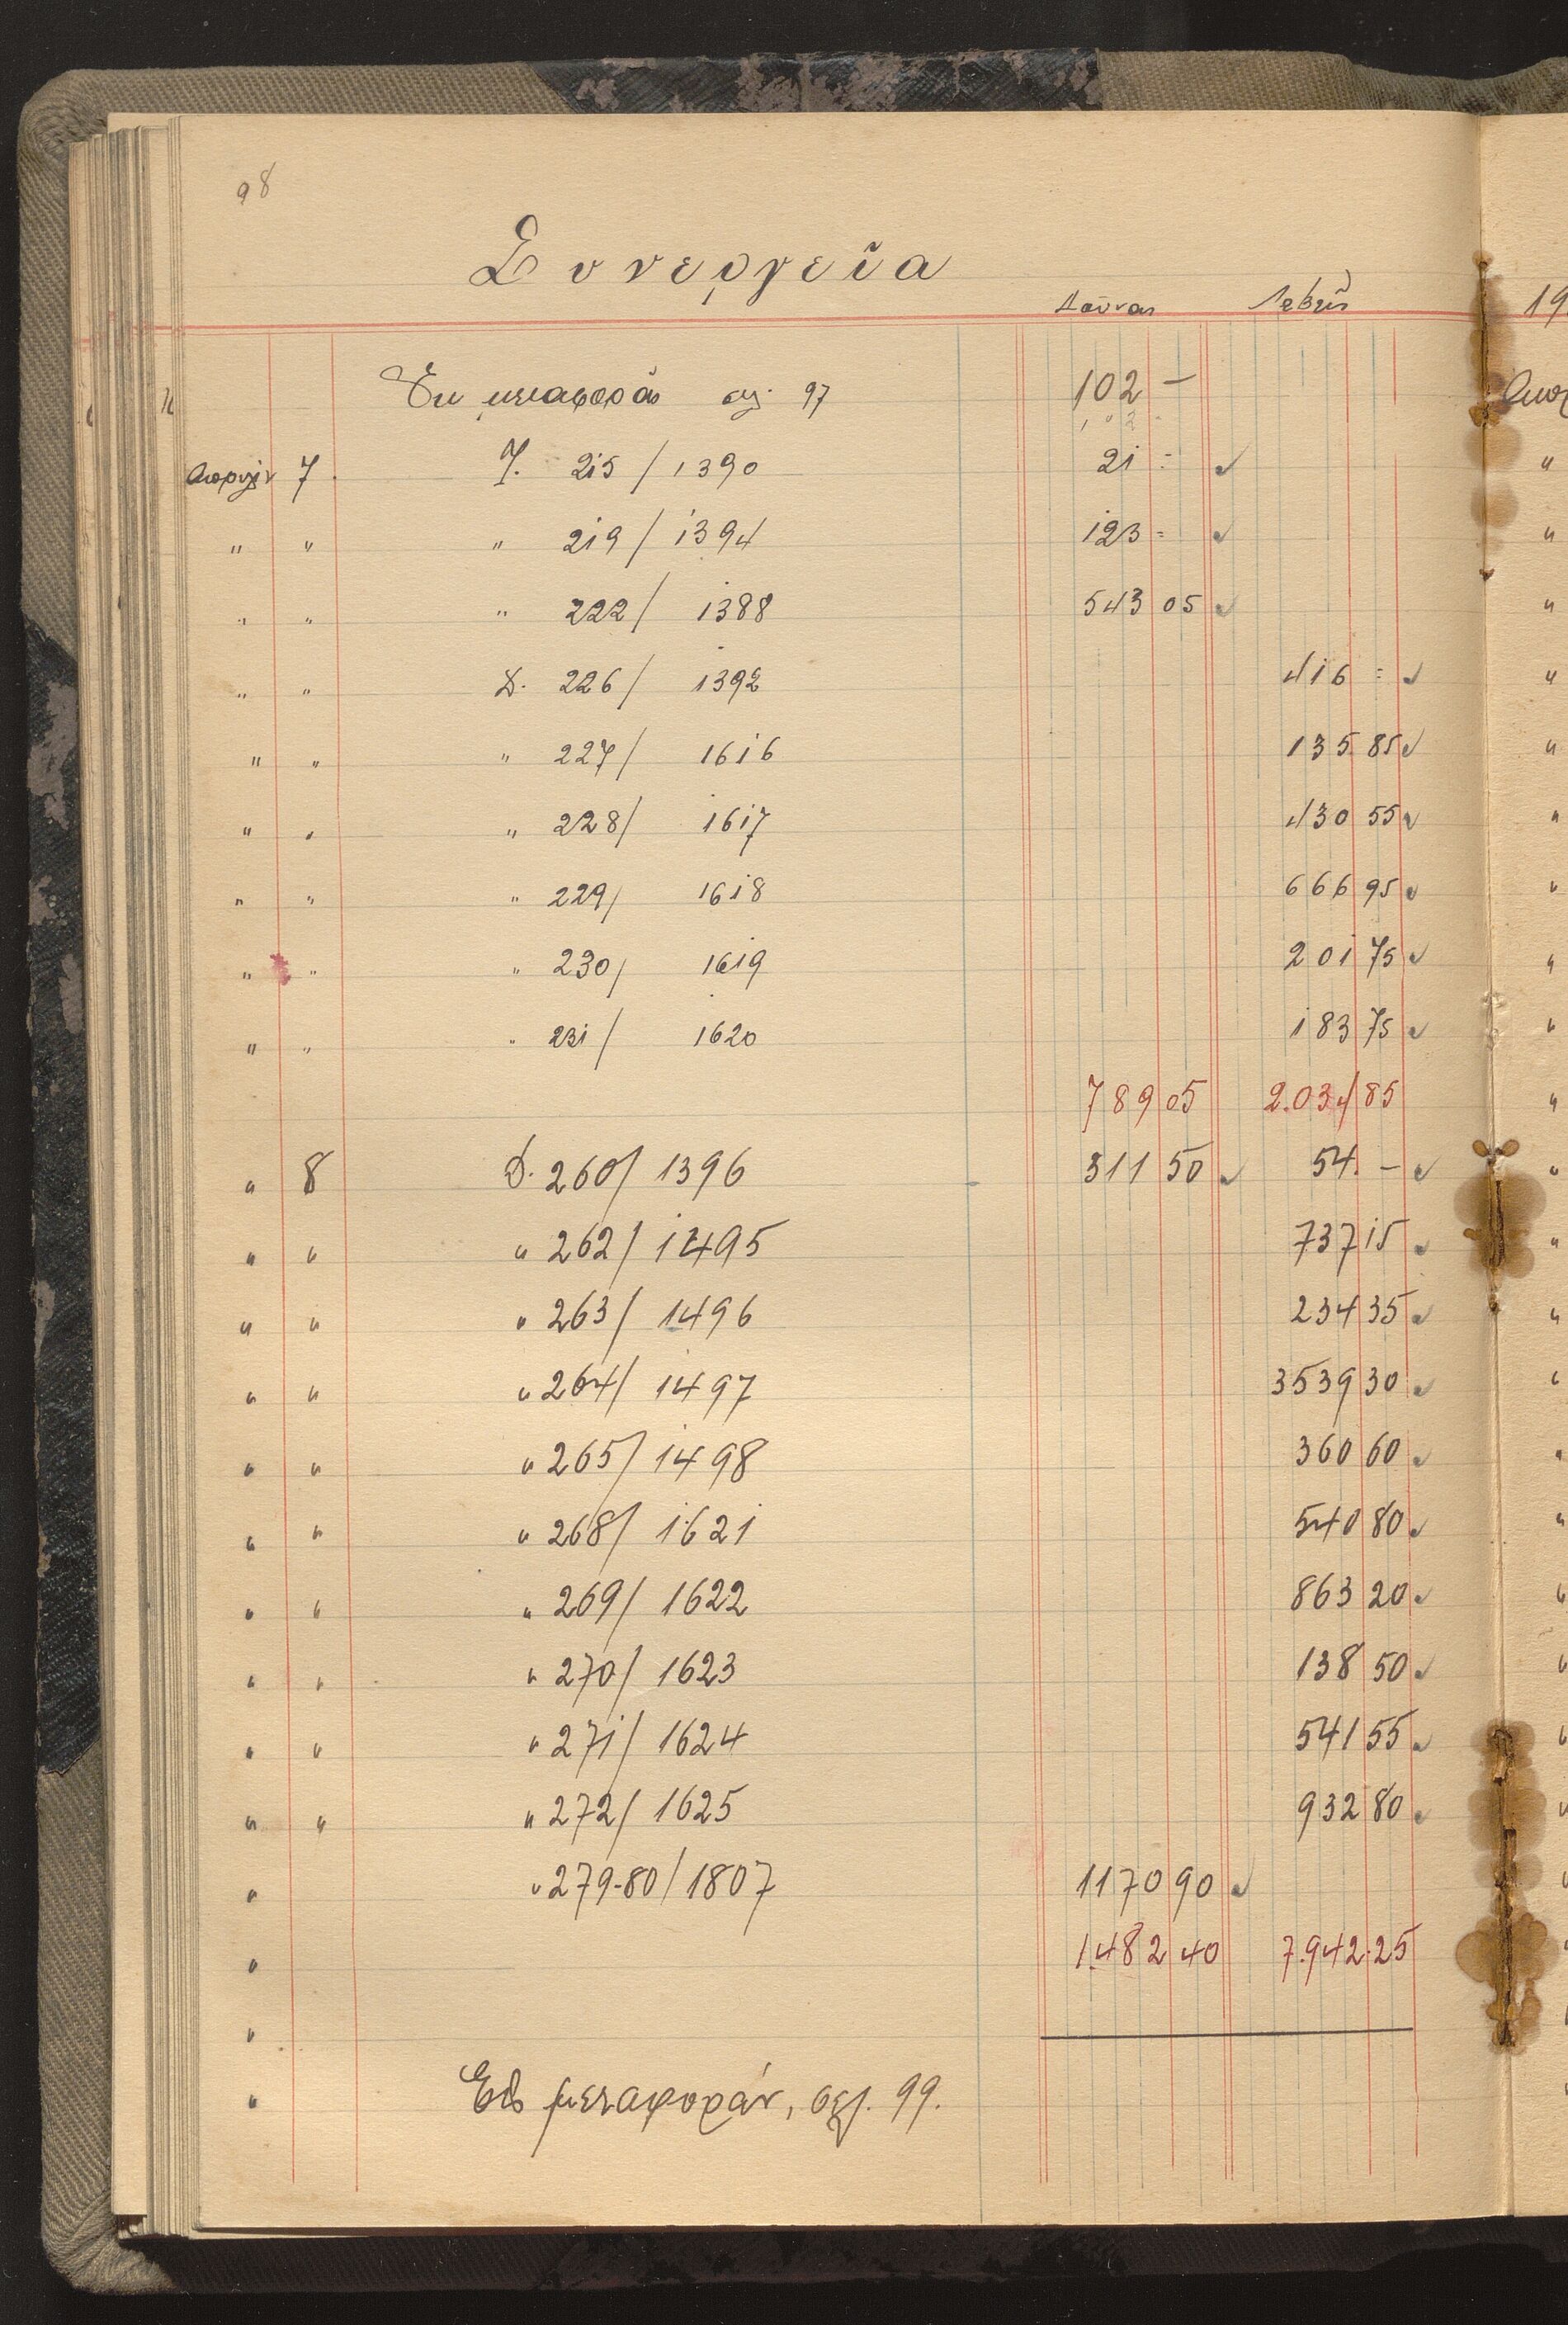 98
Συνεργεῖα
Δοῦναι Λαβεῖν
Ἐκ μεταφορᾶς σελ. 97 102 —
Απριλ. 7 Γ. 215 / 1390 21 = ✓
" " " 219 / 1394 123 = ✓
" " " 222 / 1388 543 05 ✓
" " Δ. 226 / 1392 416 = ✓
" " " 227 / 1616 135 85 ✓
" " " 228 / 1617 430 55 ✓
" " " 229 / 1618 666 95 ✓
" " " 230 / 1619 201 75 ✓
" " " 231 / 1620 183 75 ✓
789 05 2.034 85
" 8 Δ. 260 / 1396 311 50 ✓ 54. — ✓
" " " 262 / 1495 737 15 ✓
" " " 263 / 1496 234 35 ✓
" " " 264 / 1497 3539 30 ✓
" " " 265 / 1498 360 60 ✓
" " " 268 / 1621 540 80 ✓
" " " 269 / 1622 863 20 ✓
" " " 270 / 1623 138 50 ✓
" " " 271 / 1624 541 55 ✓
" " " 272 / 1625 932 80 ✓
" " 279-80 / 1807 1170 90 ✓
" 1.482 40 7.942.25
"
" Εἰς μεταφοράν, σελ. 99.
19